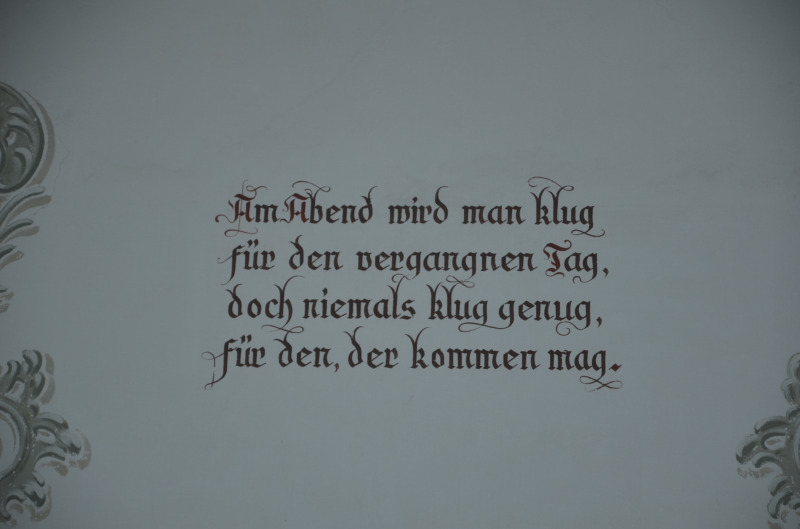 Am Abend wird man klug
für den vergangnen Tag,
doch niemals klug genug,
für den, der kommen mag.